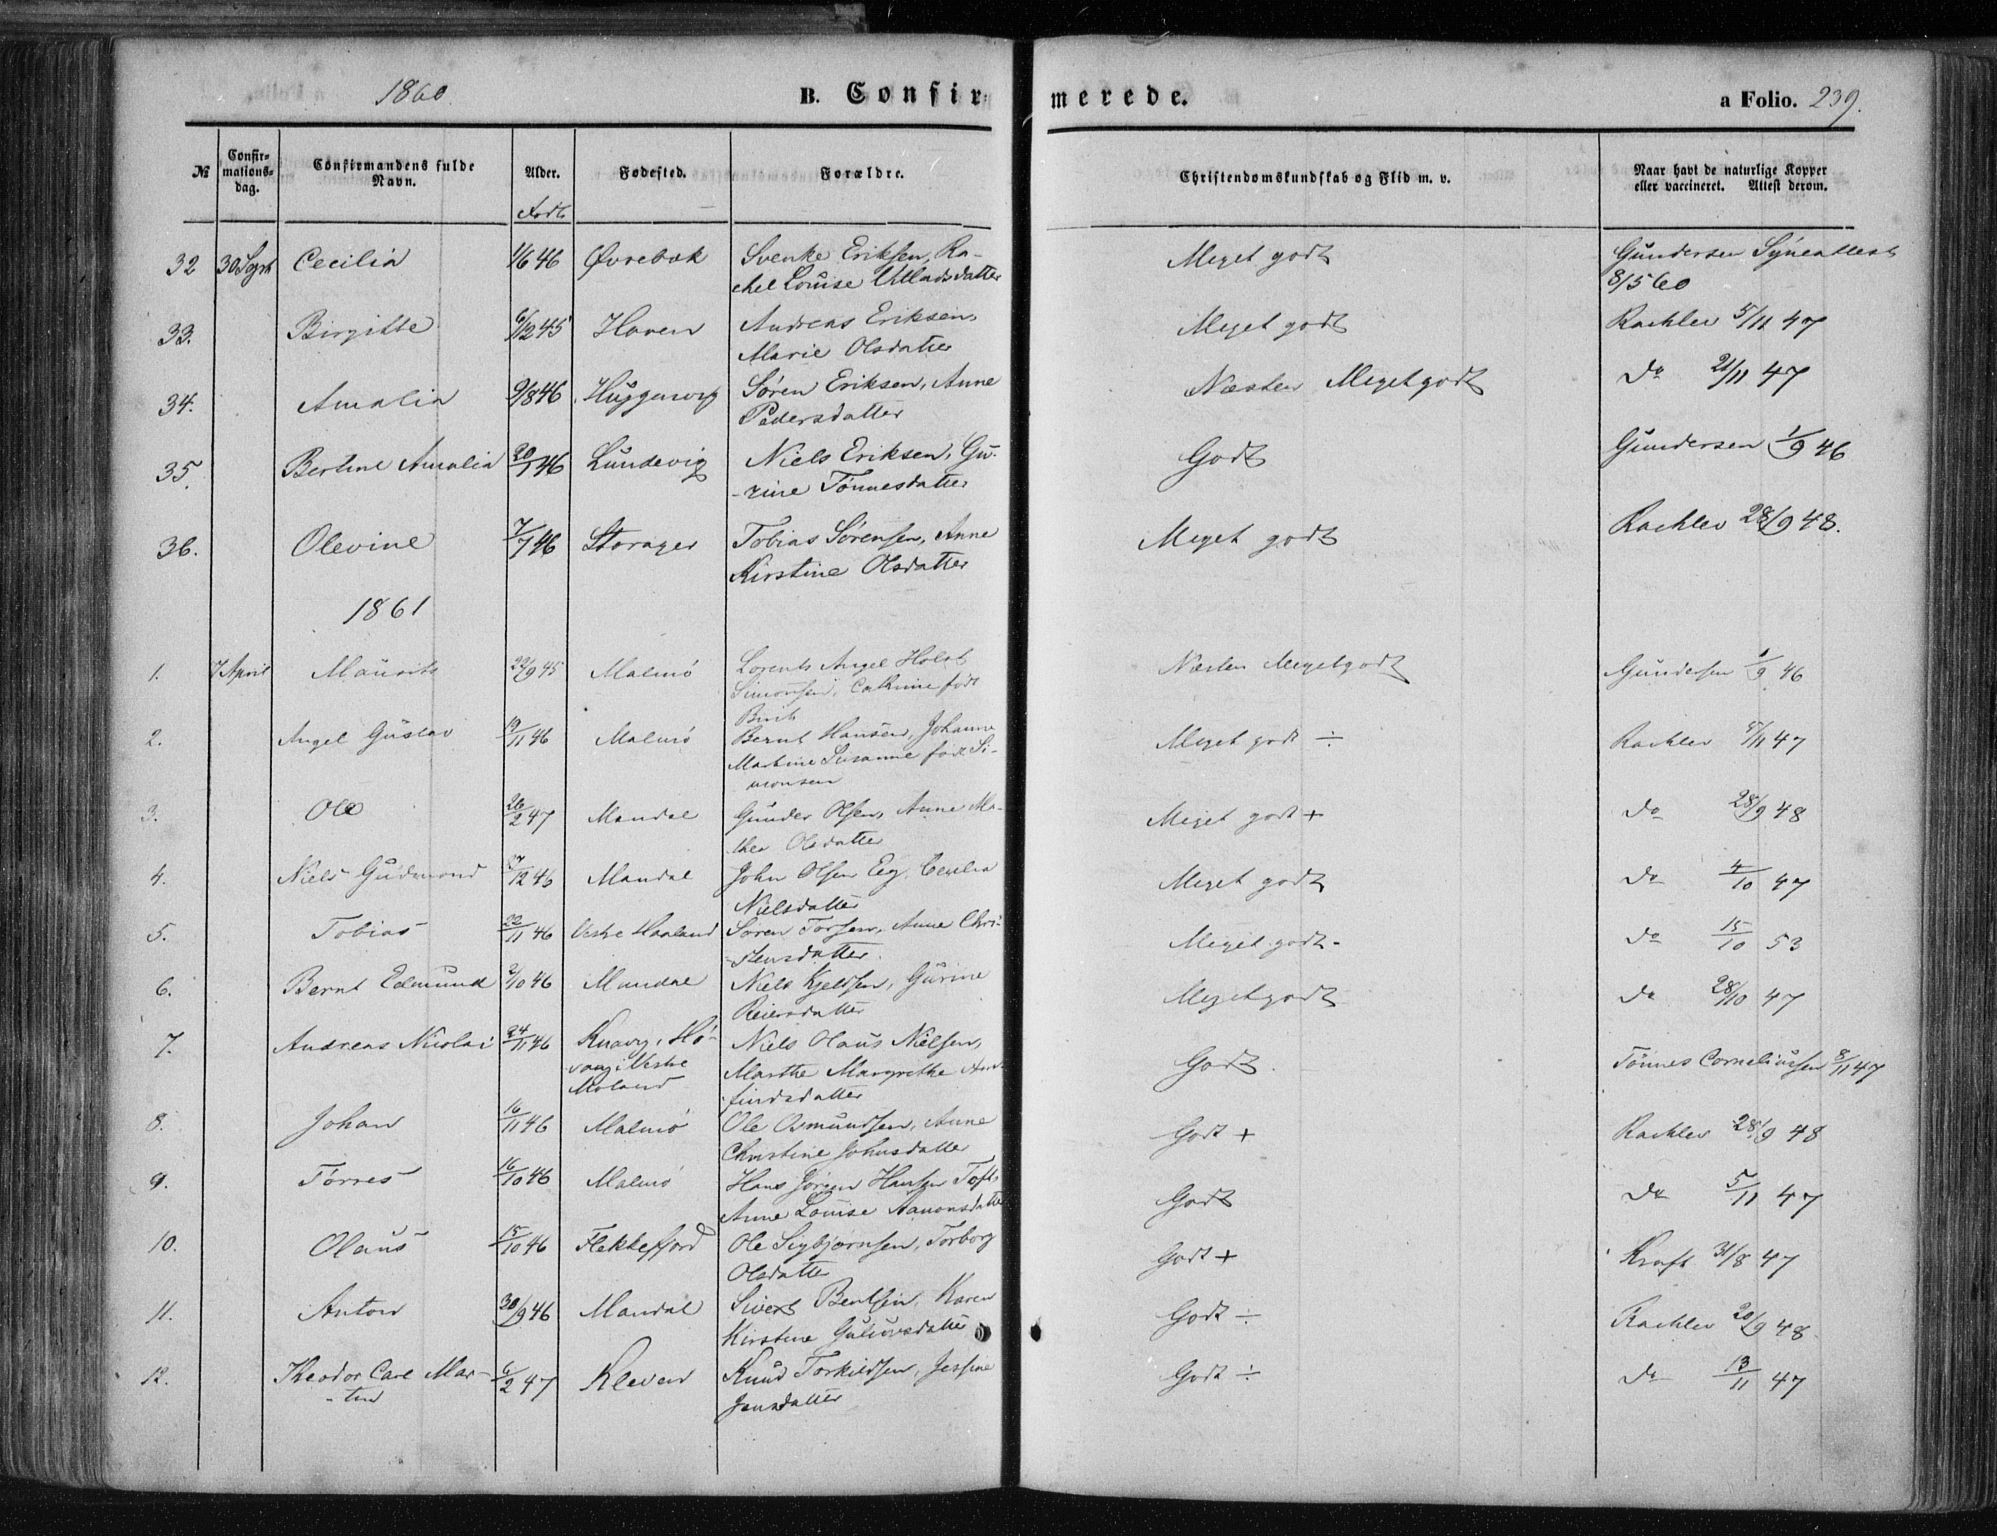 1860. B. Confir- merede. a Folio. 239.
№ Confir-mations-dag. Confirmandens fulde Navn. Alder. Fødested. Forældre. Christendomskundskab og Flid m. v. Naar havt de naturlige Kopper eller vaccineret. Attest derom.
Født
32 30 Sept Cecilia 1/6 46 Øvrebæk Svenke Eriksen, Ra- Meget godt Gundersen Syneattest
chel Louise Ulladsdatter 8/5 60
33. Birgitte 6/12 45 Haven Andreas Eriksen, Meget godt Rachlev 5/11 47
Marie Olsdatter
34. Amalia 9/8 46 Søren Eriksen, Anne Næsten Meget godt do 21/11 47
Pedersdatter
35. Bertine Amalia 20/1 46 Lundevig Niels Eriksen, Gu- Godt Gundersen 1/9 46
-rine Tønnesdatter
36. Olevine 7/7 46 Storager Tobias Sørensen, Anne Meget godt Rachlev 28/9 48.
Kirstine Olsdatter
1861
1. 7 April Maurits 29/9 45 Malmø Lorents Angel Holst Næsten Meget godt Gundersen 1/9 46
Simonsen, Cathrine født
2. Angel Gustav 19/11 46 Malmø Bernt Hansen, Johanne Meget godt ÷ Rachlev 5/11 47
Martine Susanne født Si-
monsen
3. Ole 26/2 47 Mandal Gunder Olsen, Anne Ma- Meget godt + do 28/9 48
thea Olsdatter
4. Niels Gudmund 27/12 46 Mandal John Olsen Eeg, Cecilia Meget godt do 4/10 47
Nielsdatter
5. Tobias 22/11 46 Vestre Haaland Søren Torsen, Anne Chri- Meget godt - do 15/10 53
-stensdatter.
6. Bernt Edmund 2/10 46 Mandal Niels Kjeldsen, Gurine Meget godt do 28/10 47
Reiersdatter
7. Andreas Nicolai 24/11 46 Knavg, Hø- Niels Olaus Nielsen, Godt. Tønnes Corneliussen 8/11 47
vaag i Vestre Marthe Margrethe Arn-
Moland findsdatter
8. Johan 16/11 46 Malmø Ole Osmundsen, Anne Godt + Rachlev 28/9 48
Christine Johnsdatter
9. Tørres 16/10 46 Malmø Hans Jørgen Hansen Toft, Godt do 5/11 47
Anne Louise Aanonsdatter
10. Olaus 15/10 46 Flekkefjord Ole Sigbjørnsen, Torborg Godt + Kraft 31/8 47
Olsdatter
11. Anton 30/9 46 Mandal Sivert Bentsen, Karen Godt ÷ Rachlev 20/9 48
Kirstine Gulovsdatter
12. Theodor Carl Mar- 6/2 47 Kleven Knud Torkildsen, Jessine Godt ÷ do 13/11 47
-tin Jensdatter